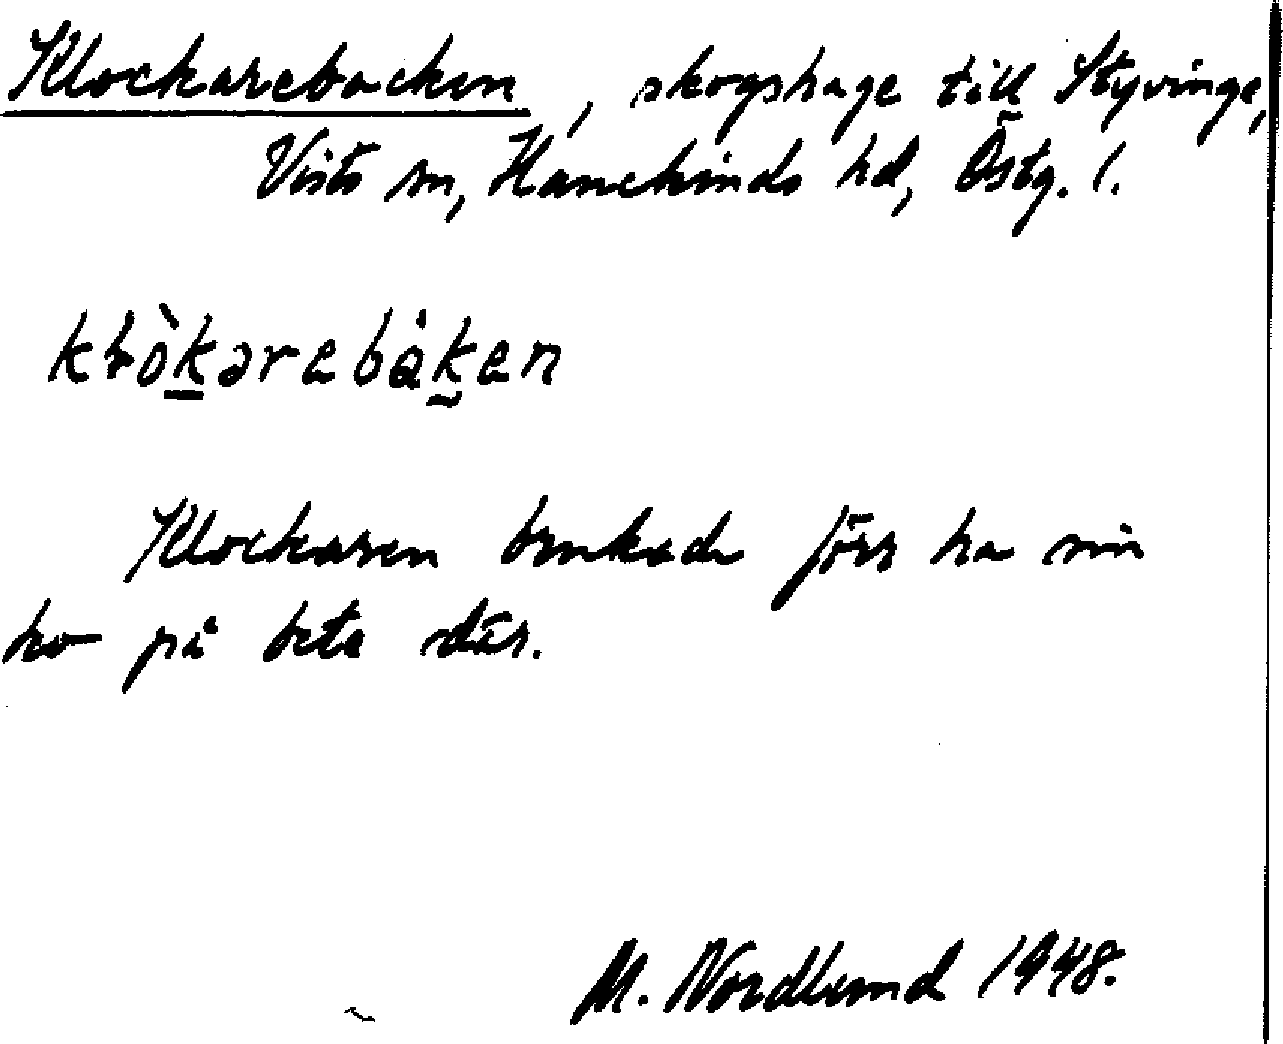 Klockarebacken, skogshage till Styvinge,
Vists sn, Hanekinds hd, Östg. l.
Klockaren brukade förr ha sin
ko på bete där.
M. Nordlund 1948.